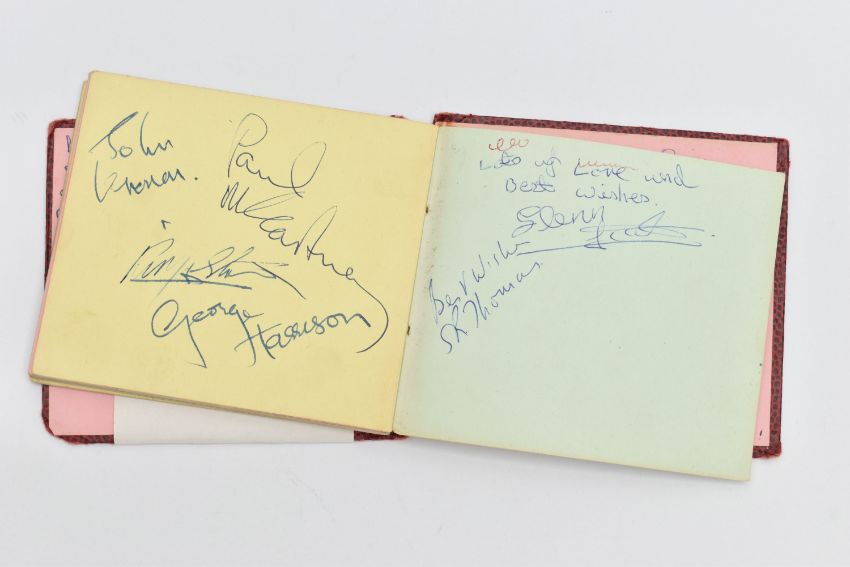 John
Lennon.
Paul
McCartney
Ringo Starr
George
Harrison
Lots of Love and
Best wishes.
Glenn
Best Wishes
Thomas